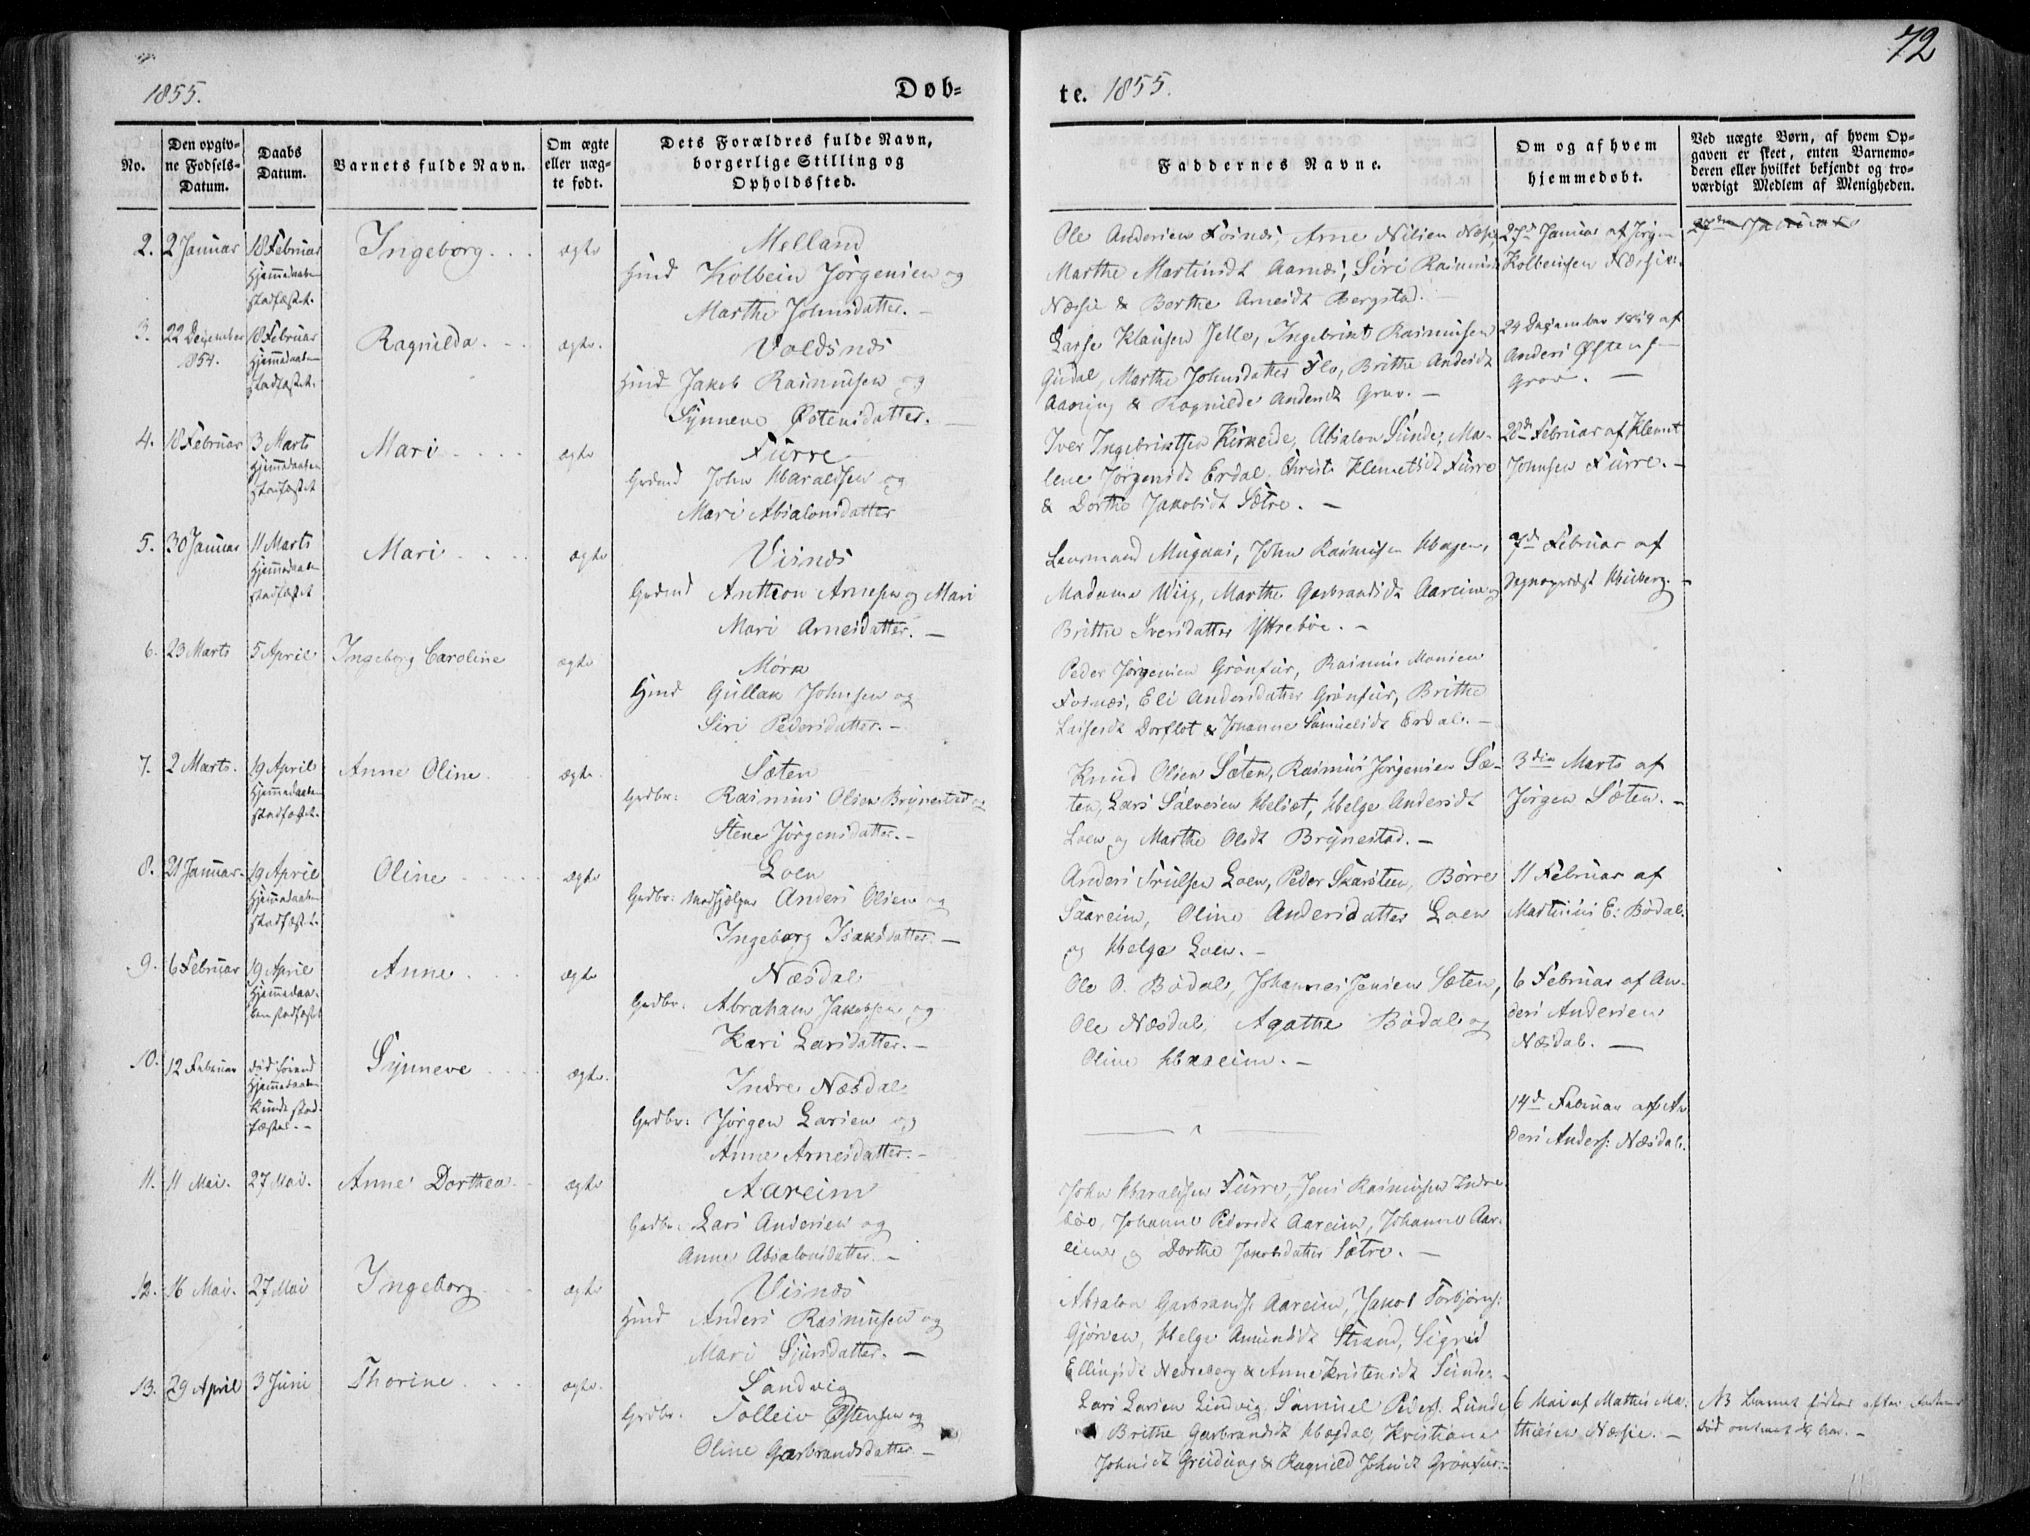 72
1855.
Døb-
te. 1855.
No.
Den opgiv-
ne Fødsels-
Datum.
Daabs
Datum.
Barnets fulde Navn.
Om ægte
eller uæg-
te født.
Dets Forældres fulde Navn,
borgerlige Stilling og
Opholdssted.
Faddernes Navne.
Om og af hvem
hjemmedøbt.
Ved uægte Børn, af hvem Op-
gaven er skeet, enten Barnemo-
deren eller hvilket bekjendt og tro-
værdigt Medlem af Menigheden.
2. 2 Januar 18 Februar Ingeborg ægte Melland
Hjemmedaaben
stadfæstet.
Hmd Kolbein Jørgensen og
Marthe Johnsdatter.
Ole Andersen Fosnæs, Arne Nilsen Næsje
Marthe Martinsdt Aarnæs, Siri Rasmus
Næsje & Berthe Arnesdt Bergstad.
27d Januar af Jørgen
Kolbeinsen
3. 22 December 18 Februar Ragnilda ægte. Voldsnæs
854. Hjemmedaaben
stadfæstet.
Hmd Jakob Rasmussen og
Synneve Østensdatter.
Lasse Klausen Jelle, Ingebrikt Rasmussen
Gudal, Marthe Johnsdatter Flo, Brithe Andersdt
& Ragnilde Andersdt Grov.
24 December 1854 af
Anders Østens
Grov.
4. 18 Februar 3 Marts Mari ægte Furre
Hjemmedaaben
stadfæstet
Grdmd John Haraldsen og
Mari Absalonsdatter
Iver Ingebriktsen Kirkeide, Absalon Sunde, Ma-
lene Jørgensdt Erdal, Christi Klemetsdt Furre
& Dorthe Jakobsdt Sætre.
20de Februar af Klemet
Johnsen Furre.
5. 30 Januar 11 Marts Mari ægte Visnæs
Hjemmedaaben
stadfæstet
Grdmd Anthon Arnesen og Mari
Mari Arnesdatter.
Lensmand Mugaas, John Rasmusen Hagen,
Madame Wiig, Marthe Garbrandsdt Aareim og
Brithe Iversdatter Yttrebøe.
7d Februar af
Sognepræst
6. 23 Marts 5 April Ingeborg Caroline ægte Mørk
Hmd Gullak Johnsen og
Siri Pedersdatter.
Peder Jørgensen Grønfur, Rasmus Monsen
Fosnæs, Eli Andersdatter Grønfur, Brithe
Dorflot & Johanne Samuelsdt Erdal.
7. 2 Marts. 19 April Anne Oline ægte Sæten
Hjemmedaaben
stadfæstet.
Grdbr: Rasmus Olsen Brynestad og
Stene Jørgensdatter.
Knud Olsen Sæten, Rasmus Jørgensen Sæ-
ten, Lars Salvesen Helset, Helge Andersdt
Loen og Marthe Olsdt Brynestad.
3die Marts af
Jørgen Sæten.
8. 21 Januar. 19 April Oline ægte Loen
Hjemmedaaben
stadfæstet.
Grdbr: Medhjelper Anders Olsen og
Ingeborg Isaksdatter.
Anders Trulsen Loen, Peder Skarsteen, Børre
Skareim, Oline Andersdatter Loen
og Helge Loen.
11 Februar af
Martinus E: Bødal.
9. 6 Februar 19 April Anne ægte Næsdal
Hjemmedaa-
ben stadfæstet
Grdbr: Abraham Jakobsen og
Kari Larsdatter.
Ole P. Bødal, Johannes Jensen Sæten,
Ole Næsdal, Agathe Bødal og
Oline Haaheim.
6 Februar af An-
ders Andersen
Næsdal.
10. 12 Februar død førend Synneve ægte. Indre Næsdal
Hjemmedaaben
kunde stad-
fæstes.
Grdbr: Jørgen Larsen og
Anne Arnesdatter.
14d Februar af An
ders Anders: Næsdal.
11. 11 Mai. 27 Mai. Anne Dorthea ægte Aareim
Grdbr: Lars Andersen og
Anne Absalonsdatter.
John Haraldsen Furre, Jens Rasmusen Indre
bøe, Johanne Pedersdt Aareim, Johanne Aar-
eim og Dorthe Jakobsdatter Sætre.
12. 16 Mai. 27 Mai Ingeborg ægte Visnæs
Hmd Anders Rasmusen og
Mari Sjursdatter.
Absalon Garbrands: Aareim, Jakob Torbjørns:
Gjørven, Helge Amundsdt Strand, Sigrid
Ellingsdt Nedreberg & Anne Kristensdt Sunde.
13. 29 April 3 Juni Thorine ægte. Sandvig
Grdbr: Tolleiv Østensen og
Oline Garbrandsdatter
Lars Larsen Lindvig, Samuel Peders: Lunde
Brithe Garbrandsdt Hægdal, Kristiane
Johnsdt Greidung & Ragnild Johnsdt Grønfur.
6 Mai af Mathis Ma-
thiesen Næsje.
NB Barnet